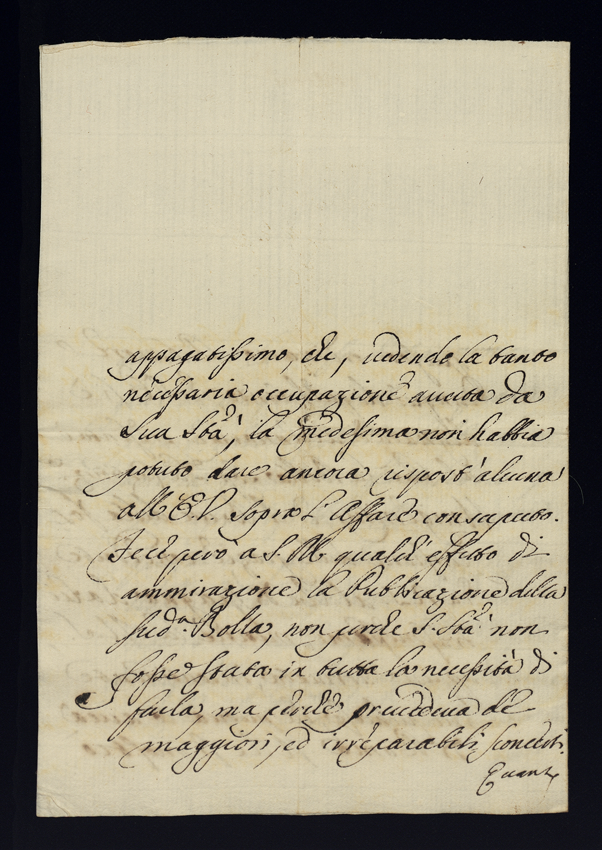 appagatissimo, che, vedendo la tanto
necessaria occupazione avuta da
Sua Stà, la medesima non habbia
potuto dare ancora rispost'alcuna
all'E. V. sopra l'Affare consaputo.
Fece però a S. M. qualch'effetto di
ammirazione la Publicazione della
sud.a Bolla, non perche S. Stà non
fosse stata in tutta la necessità di
farla, ma perche prevedeva de'
maggiori, ed irreparabili sconcerti.